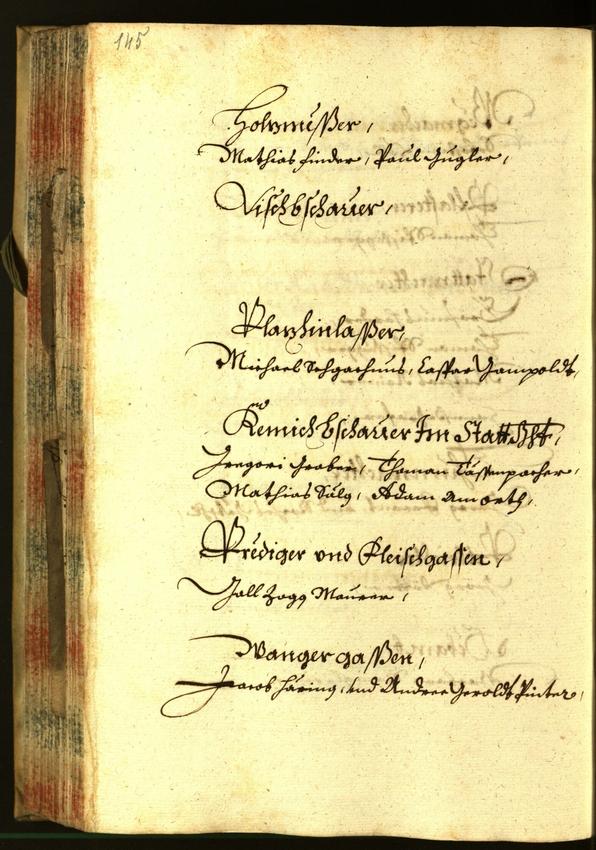 145
Holzmesßer,
Mathias finder, Paul Gugler,
Vischbschauer,
Plazhinlasßer,
Michael Caspar Gampoldt,
Kemichbschauer Im Statt
Gregori Graber, Thoman Tassenpacher,
Mathias Sälg, Adam am orth,
Prediger vnd Fleischgassen,
Gall Zogg Maurer,
Wangergasßen,
Jacob Häring, vnd Andree Geroldt Pinter,